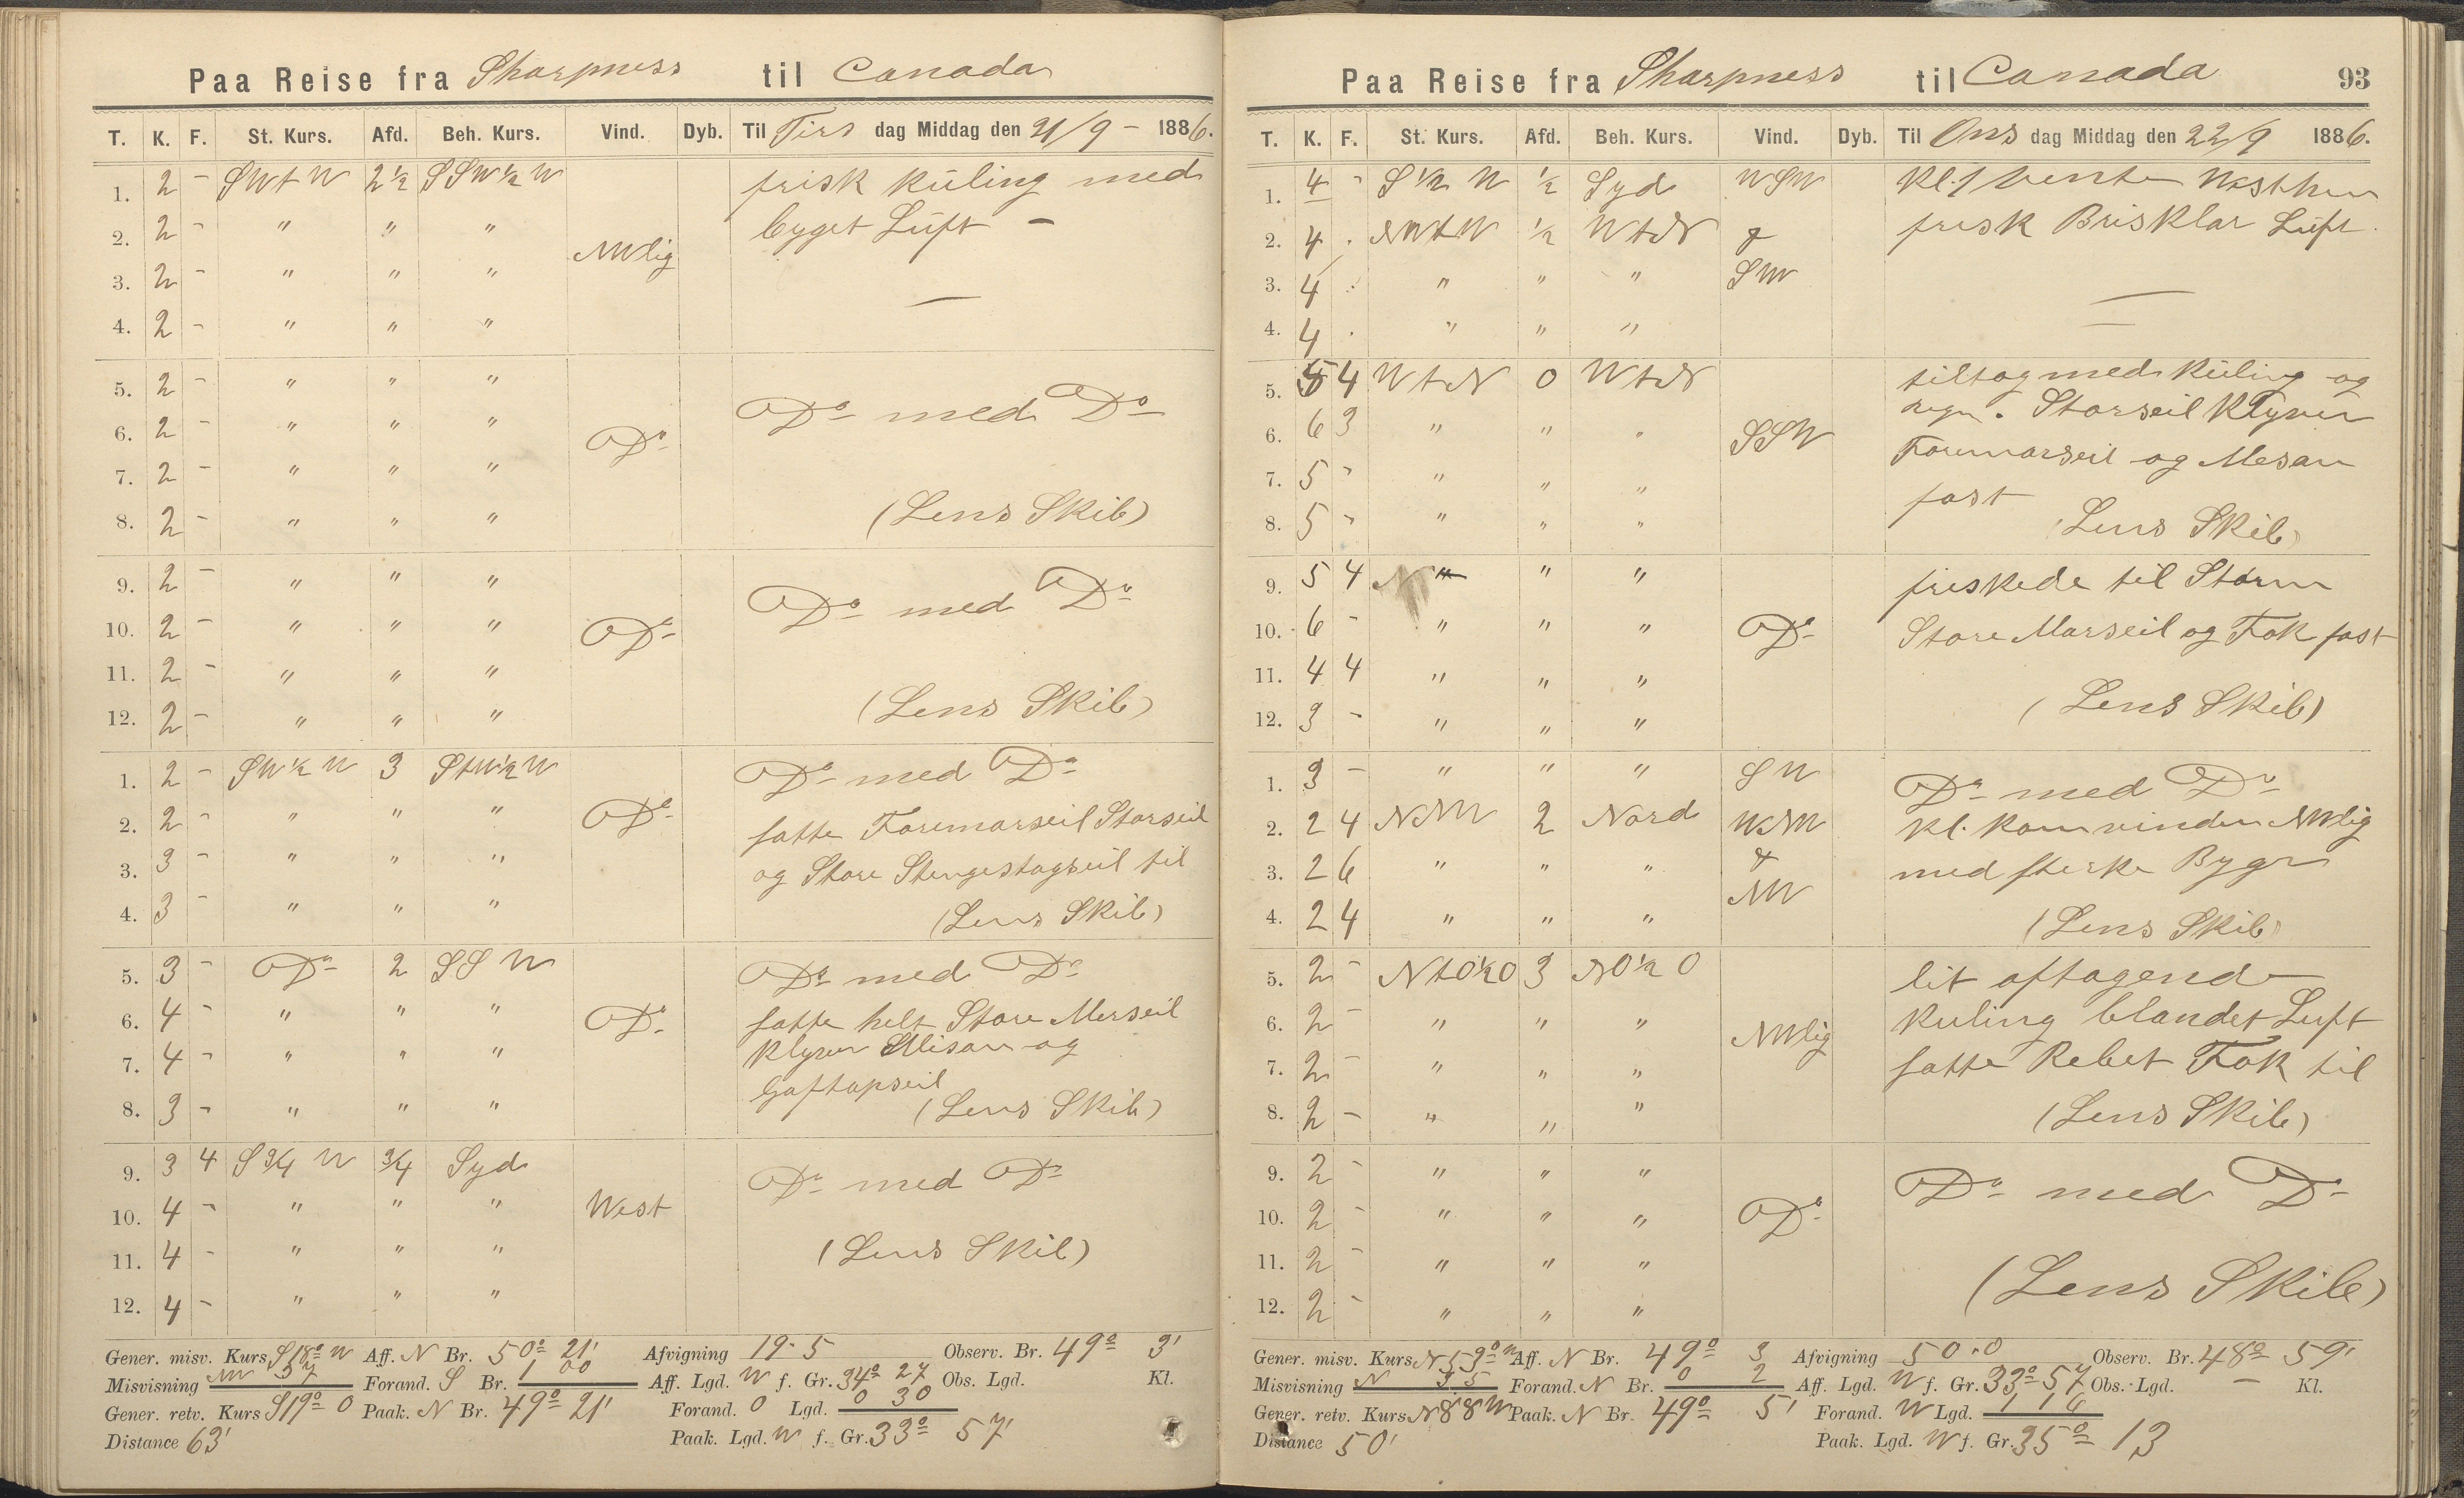 Paa Reise fra Sharpness til Canada
T. K. F. St. Kurs. Afd. Beh. Kurs. Vind. Dyb. Til Tirs dag Middag den 21/9 - 1886.
1. 2 - SWtW 2½ SSW½W frisk kúling med
2. 2 - " " " byget Lúft -
NWlig
3. 2 - " " "
4. 2 - " " "
5. 2 - " " "
Do med Do
6. 2 - " " " Do
7. 2 - " " "
8. 2 - " " " (Lens Skib)
9. 2 - " " "
Do med Do
10. 2 - " " " Do
11. 2 - " " "
12. 2 - " " " (Lens Skib)
1. 2 - SW½W 3 StW½W Do med Do
2. 2 - " " " Do satte Foremarseil Storseil
3. 3 - " " " og Store Stengestagseil til
4. 3 - " " " (Lens Skib)
5. 3 - Do 2 SSW Do med Do
6. 4 - " " " Do satte helt Store Merseil
7. 4 - " " " Klyver Misan og
Gaftopseil
8. 3 - " " " (Lens Skib)
9. 3 4 S¾W ¾ Syd Do med Do
10. 4 - " " " West
11. 4 - " " " (Lens Skib)
12. 4 - " " "
Gener. misv. Kurs S18° W Aff. N Br. 50° 21' Afvigning 19.5 Observ. Br. 49° 3'
Misvisning NW 37 Forand. S Br. 1 00 Aff. Lgd. W f. Gr. 34° 27 Obs. Lgd. Kl.
Gener. retv. Kurs S19° O Paak. N Br. 49° 21' Forand. O Lgd. 0 30
Distance 63' Paak. Lgd. W f. Gr. 33° 57'
Paa Reise fra Sharpness til Canada 93
T. K. F. St. Kurs. Afd. Beh. Kurs. Vind. Dyb. Til Ons dag Middag den 22/9 1886.
1. 4 - S½W ½ Syd WSW Kl. 1 vente
2. 4 . NWtW ½ WtN & frisk Bris Klar Lúft.
3. 4 . " " " SW
4. 4 . " " "
5. 5 4 WtN 0 WtN tiltog med Kúling og
6. 6 3 " " " SSW regn. Storseil Klyver
7. 5 - " " " Foremarseil og Mesan
fast
8. 5 - " " " (Lens Skib)
9. 5 4 N " " " friskede til Storm
10. 6 - " " " Do Store Marseil og Fok fast
11. 4 4 " " "
12. 3 - " " " (Lens Skib)
1. 3 - " " " SW Do med Do
2. 2 4 NNW 2 Nord WNW Kl. Kom vinden NWlig
3. 2 6 " " " & med sterke Bygr
NW
4. 2 4 " " " (Lens Skib)
5. 2 - NtO½O 3 NO½O lit aftagende
6. 2 - " " " Kuling blandet Luft
NWlig
7. 2 - " " " satte Rebet Fok til
8. 2 - " " " (Lens Skib)
9. 2 - " " "
Do med Do
10. 2 - " " " Do
11. 2 - " " "
(Lens Skib)
12. 2 - " " "
Gener. misv. Kurs N53° W Aff. N Br. 49° 3 Afvigning 50.0 Observ. Br. 48° 59'
Misvisning N 35 Forand. N Br. 0 2 Aff. Lgd. W f. Gr. 33° 57 Obs. Lgd. - Kl.
Gener. retv. Kurs N88W Paak. N Br. 49° 5' Forand. W Lgd. 1 16
Distance 50' Paak. Lgd. W f. Gr. 35° 13